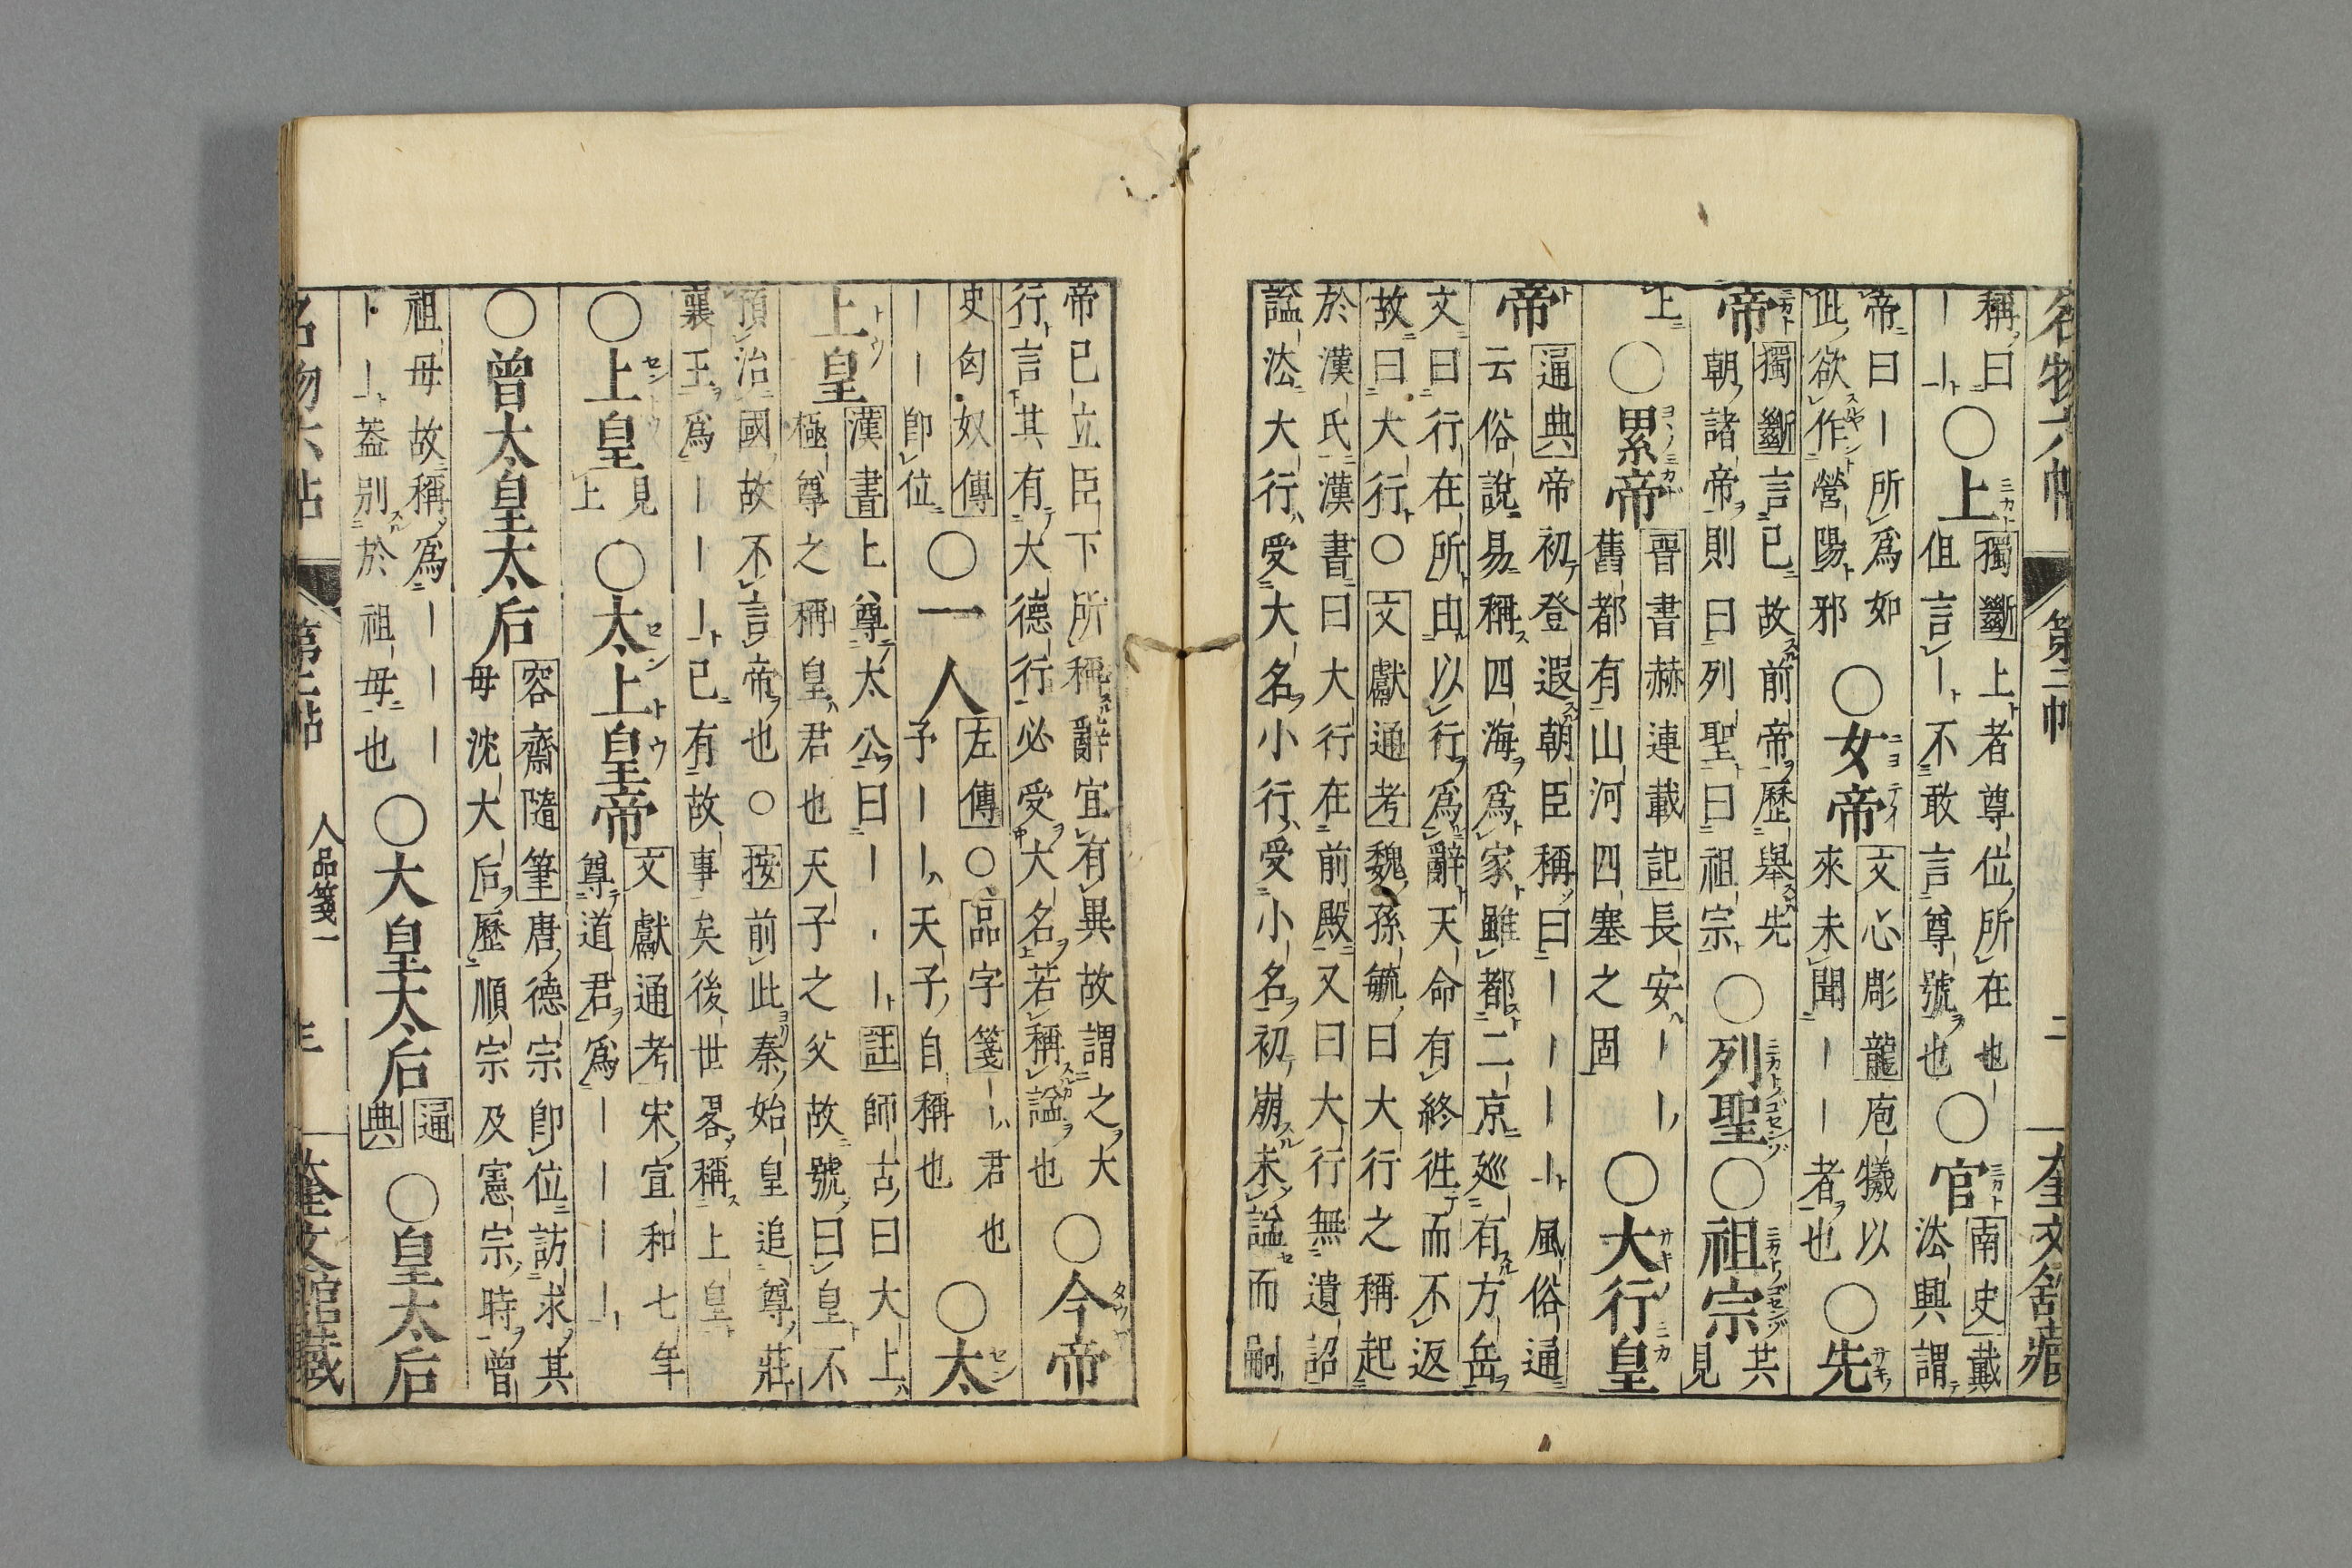 名物六帖 第二帖 二 奎文舘藏
稱曰｜｜○上獨斷上者尊位所在也但言｜不敢言尊號也○官南史戴法興謂
帝曰｜所爲如此欲作營陽邪○女帝文心彫龍庖犧以來未聞｜｜者也○先
帝獨斷言已故前帝歷舉先朝諸帝則曰列聖曰祖宗○列聖○祖宗共見
上○累帝晉書赫連載記長安｜｜舊都有山河四塞之固○大行皇
帝通典帝初登遐朝臣稱曰｜｜｜｜風俗通云俗說易稱四海爲家雖都二京廵有方岳
文曰行在所由以行爲辭天命有終徃而不返故曰大行○文獻通考魏孫毓曰大行之稱起
於漢氏漢書曰大行在前殿又曰大行無遺詔謚法大行受大名小行受小名初崩未謚而嗣
帝已立臣下所稱辭宜有異故謂之大行言其有大德行必受大名若稱謚也○今帝
史匈奴傳｜｜卽位○一人左傳○品字箋｜｜君也予｜｜天子自稱也○太
上皇漢書上尊太公曰｜｜｜註師古曰大上極尊之稱皇君也天子之父故號曰皇不
預治國故不言帝也○按前此秦始皇追尊莊襄王爲｜｜｜已有故事矣後世畧稱上皇
○上皇見上○太上皇帝文獻通考宋宣和七年尊道君爲｜｜｜｜
○曾太皇太后容齋隨筆唐德宗卽位訪求其母沈大后歷順宗及憲宗時曾
祖母故稱爲｜｜｜｜｜蓋別於祖母也○大皇太后通典○皇太后
名物六帖 第二帖 人品箋一 三 奎文舘藏